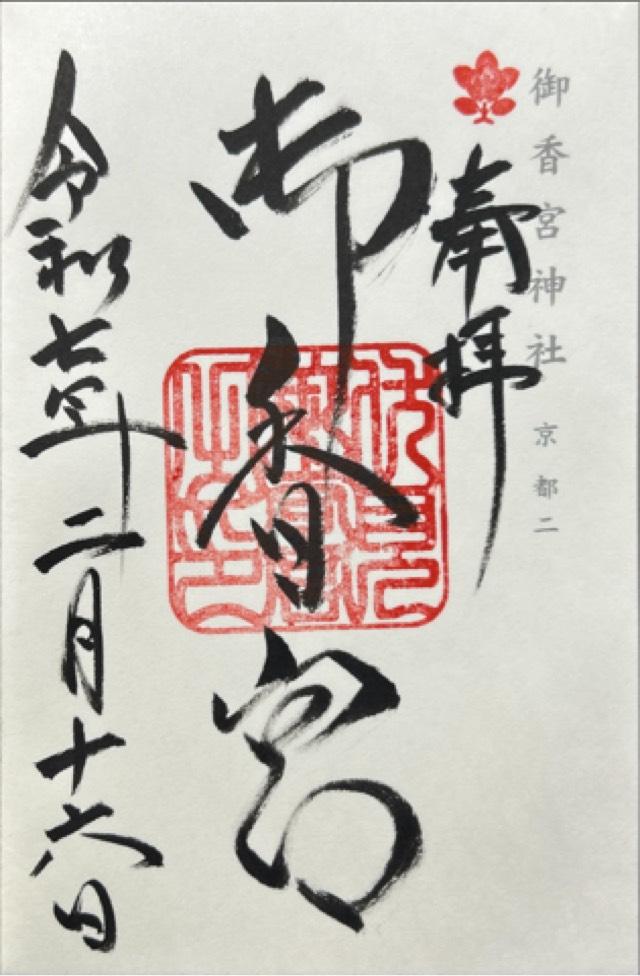 御香宮神社 京都二
奉拝
御香宮
令和七年二月十六日